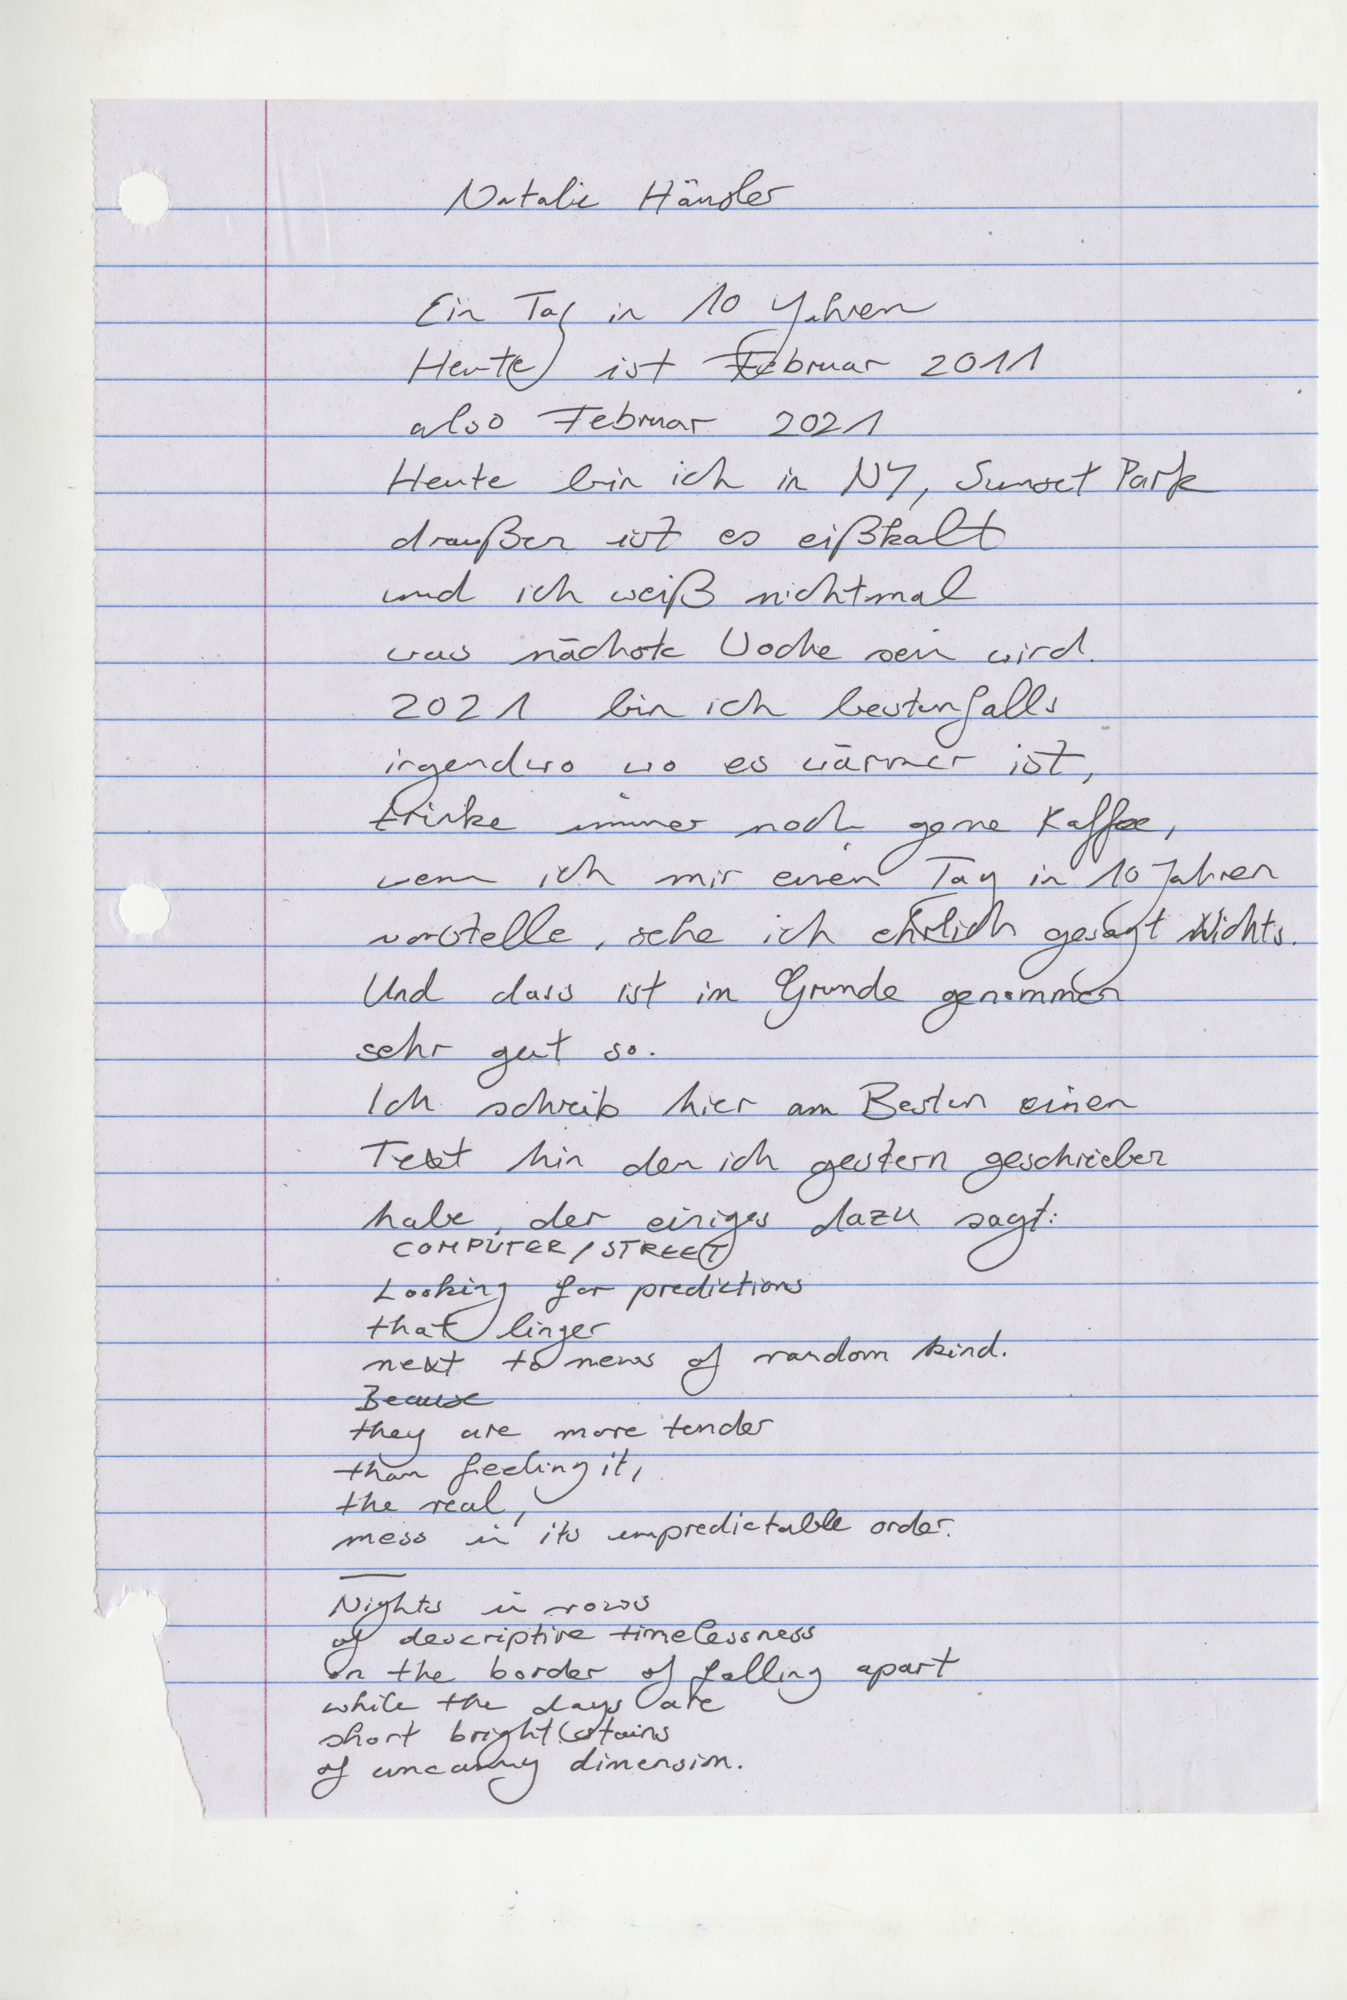 Natalie Häusler
Ein Tag in 10 Yahren
Heute ist Februar 2011
also Februar 2021
Heute bin ich in NY, Sunset Park
draußen ist es eißkalt
und ich weiß nichtmal
was nächste Woche sein wird.
2021 bin ich bestenfalls
irgendwo wo es wärmer ist,
trinke immer noch gerne Kaffee,
wenn ich mir einen Tag in 10 Jahren
vorstelle, sehe ich ehrlich gesagt Nichts.
Und dass ist im Grunde genommen
sehr gut so.
Ich schreib hier am Besten einen
Text hin den ich gestern geschrieben
habe, der einiges dazu sagt:
COMPUTER/STREET
Looking for predictions
that linger
next to news of random kind.
Because
they are more tender
than feeling it,
the real,
mess in its unpredictable order.
Nights in rows
of descriptive timelessness
on the border of falling apart
while the days are
short bright stains
of uncanny dimension.